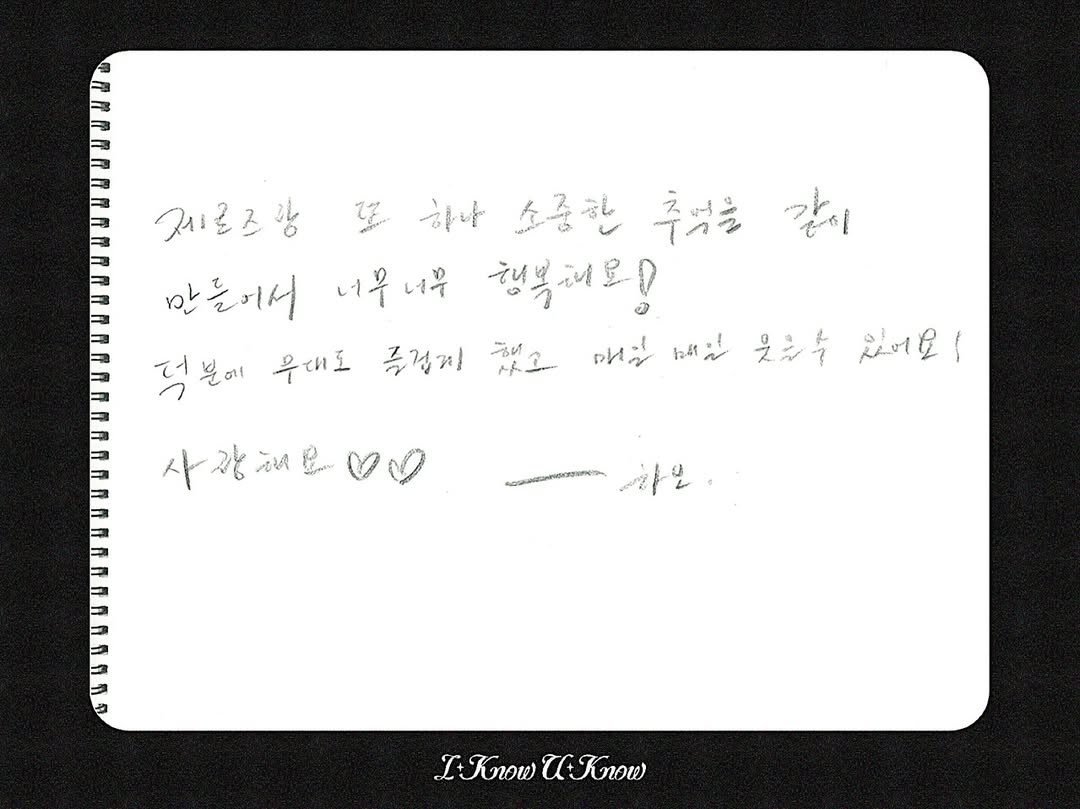 제로즈랑 또 하나 소중한 추억을 같이
만들어서 너무너무 행복해요!
덕분에 무대도 즐겁게 했고 매일 매일 웃을 수 있어요!
사랑해요♡♡ — 하오.
I Know U Know